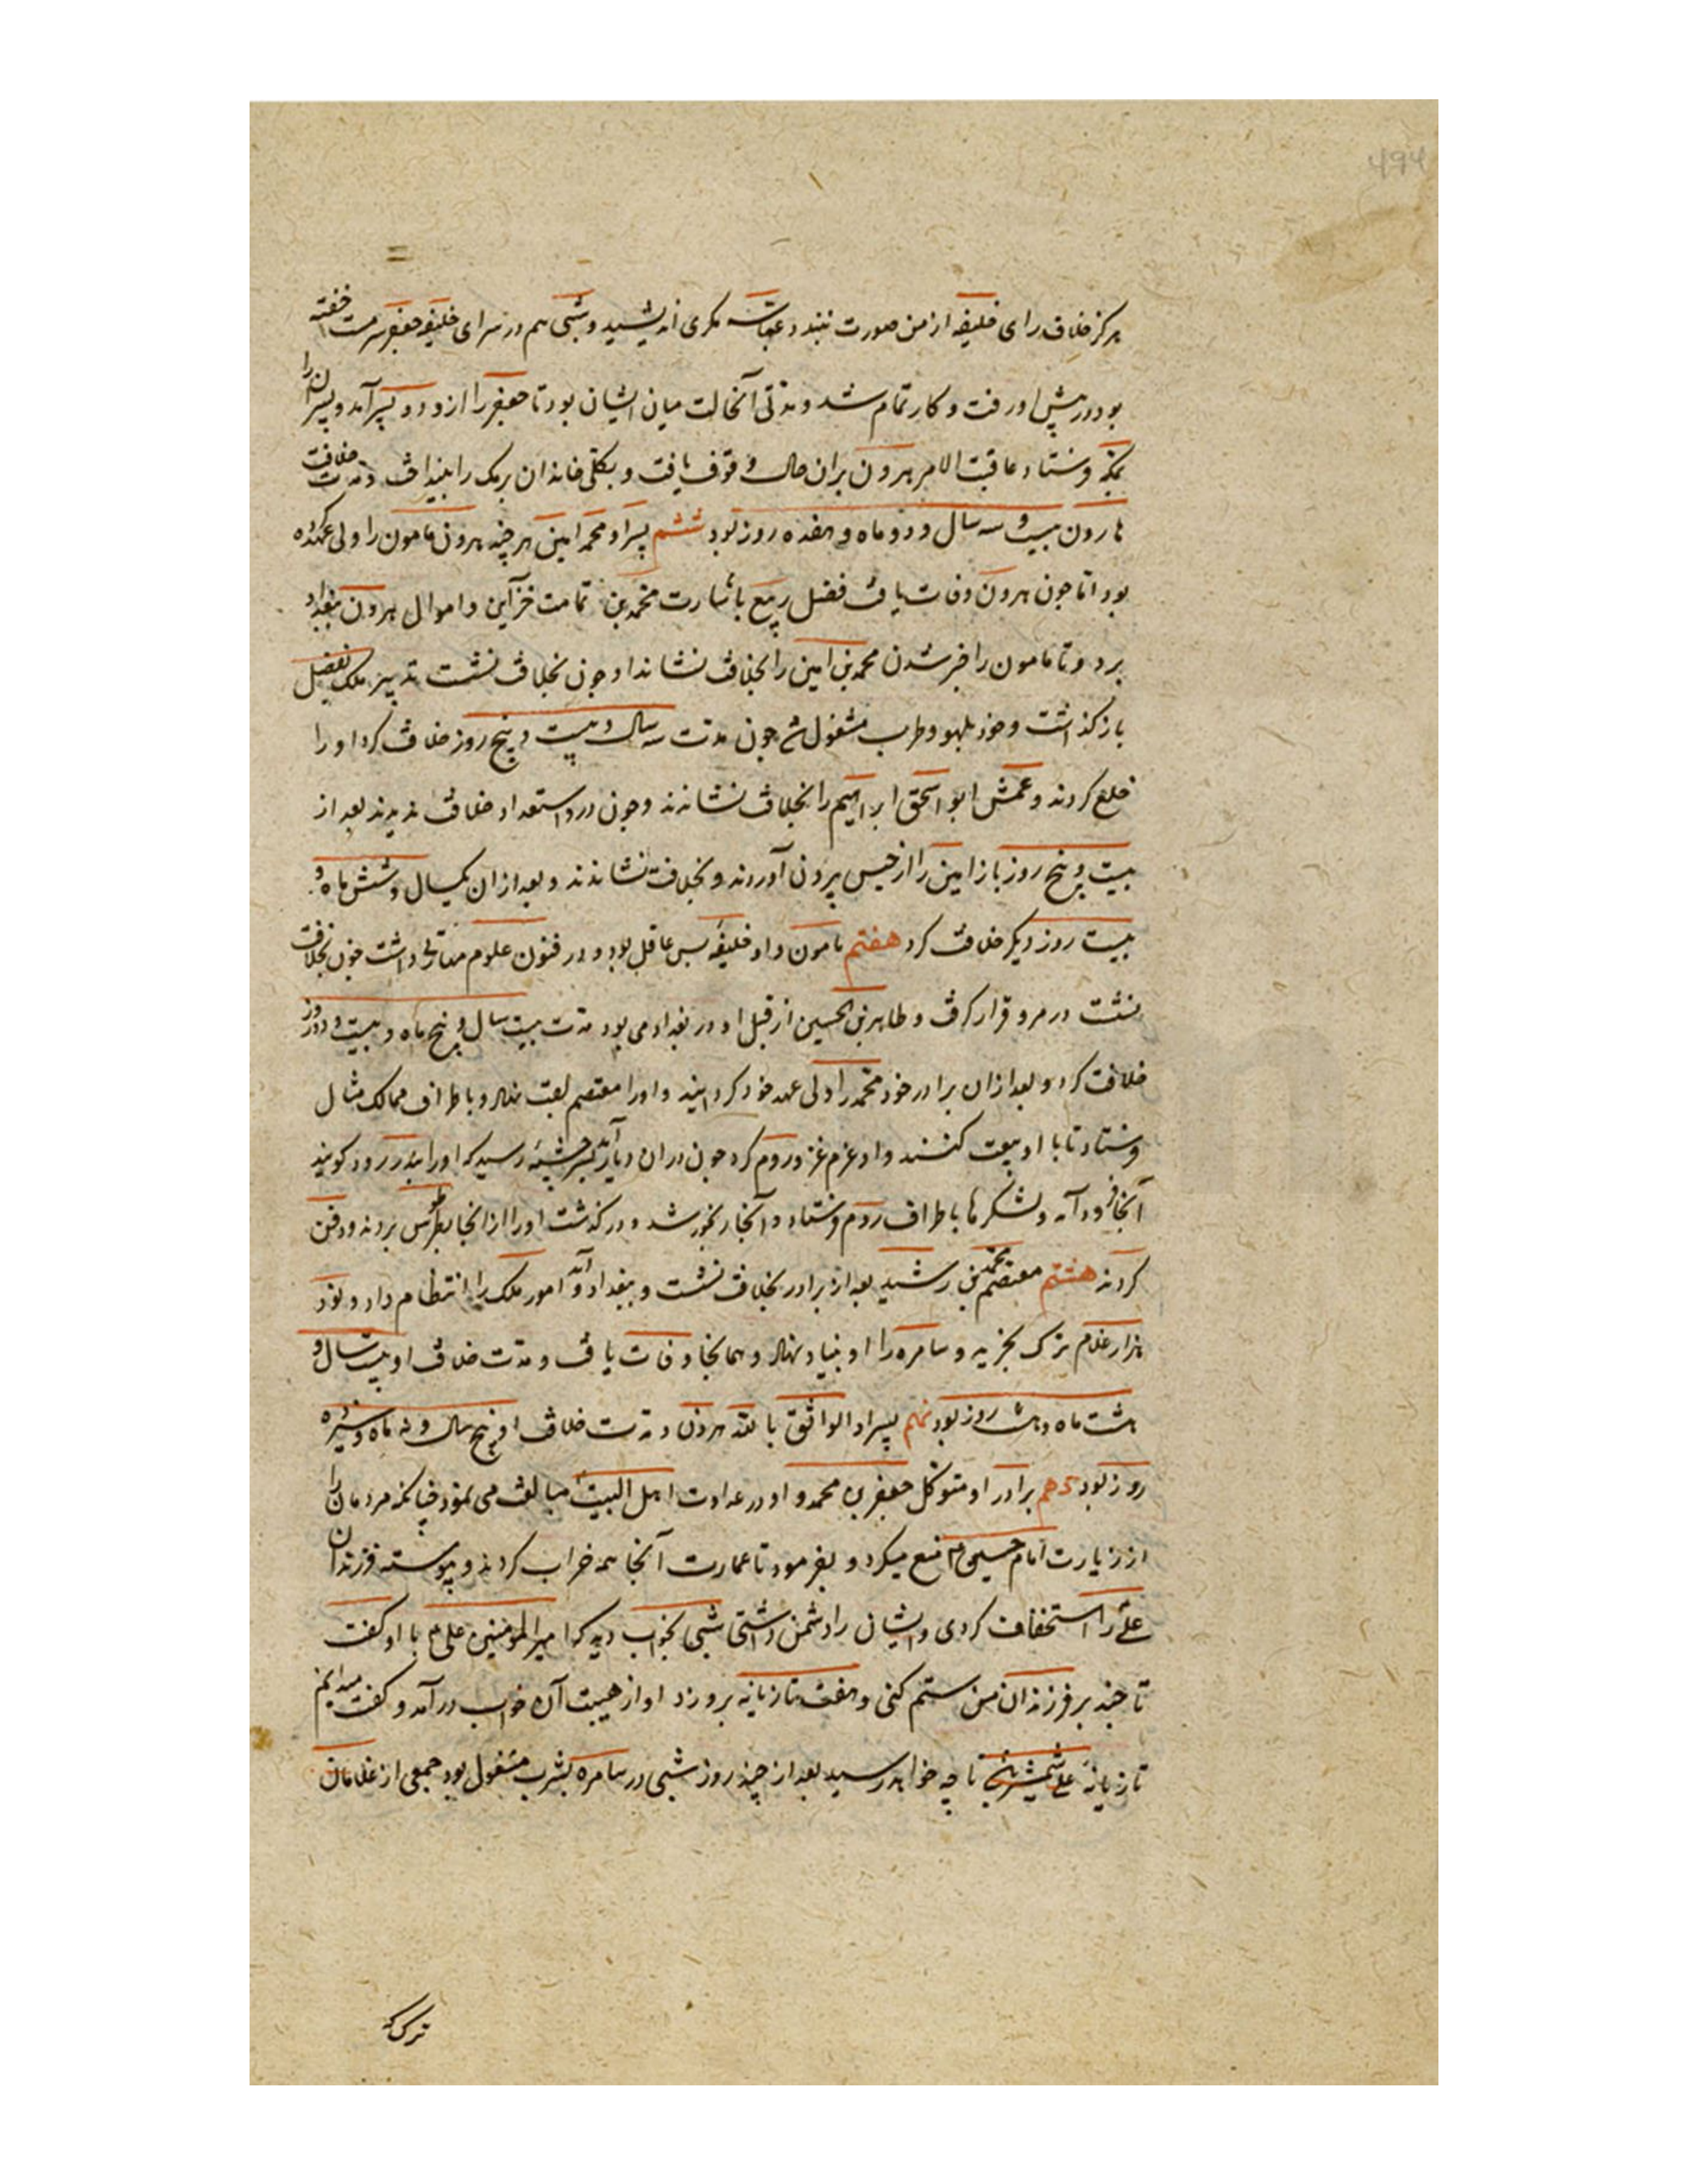 ۴۹۴
هرکز خلاف رای خلیفه از من صورت نبندد عباسه مکری اندیشید و شبی هم در سرای خلیفه جعفر سرمست خفته
بود در پیش او رفت و کار تمام شد و مدتی آنحالت میان ایشان بود تا جعفر را ازو دو پسر آمد و پسران را
بمکه فرستاد عاقبت الامر هرون بران حال وقوف یافت و بکلی خاندان برمک را بینداخت و مدت خلافت
هارون بیست و سه سال و دو ماه و هفده روز بود ششم پسر او محمد امین هر چند هرون مامون را ولی عهد کرده
بود اما چون هرون وفات یافت فضل ربیع باشارت محمد بن تمامت خزاین و اموال هرون ببغداد
برد و تا مامون را خبر شدن محمد بن امین را بخلافت نشاند او چون بخلافت نشست تدبیر ملک بفضل
باز کذاشت و خود بلهو و طرب مشغول شد چون مدت سه سال و بیست و پنج روز خلافت کرد او را
خلع کردند و عمش ابو اسحق ابراهیم را بخلافت نشاندند و چون درو استعداد خلافت ندیدند بعد از
بیست و پنج روز باز امین را از حبس بیرون آوردند و بخلافت نشاندند و بعد از ان یکسال و شش ماه و
بیست روز دیکر خلافت کرد هفتم مامون و او خلیفه بس عاقل بود و در فنون علوم مهارتی داشت چون بخلافت
نشست در مرو قرار کرفت و طاهر بن الحسین از قبل او در بغداد می بود مدت بیست سال و پنج ماه و بیست و دو روز
خلافت کرد و بعد از ان برادر خود محمد را ولی عهد خود کردانید و او را معتصم لقب نهاد و باطراف ممالک مثال
فرستاد تا با او بیعت کنند و او عزم غزو روم کرد چون دران دیار آمد بسر چشمه رسید که او را بدررود کویند
آنجا فرود آمد و لشکرها باطراف روم فرستاد و آنجا رنجور شد و درکذشت او را از انجا بطرسوس بردند و دفن
کردند هشتم معتصم محمد بن رشید بعد از برادر بخلافت نشست و ببغداد آمد و امور ملک را انتظام داد و نود
هزار غلام ترک بخرید و سامره را او بنیاد نهاد و همانجا وفات یافت و مدت خلافت او بیست سال و
هشت ماه و هشت روز بود نهم پسر او الواثق بالله هرون و مدت خلافت او پنج سال و نه ماه و سیزده
روز بود دهم برادر او متوکل جعفر بن محمد و او در عداوت اهل البیت مبالغت می نمود چنانکه مردمان را
از زیارت امام حسین م منع میکرد و بفرمود تا عمارت آنجا همه خراب کردند و پیوسته فرزندان
علی را استخفاف کردی و ایشان را دشمن داشتی شبی بخواب دید که امیر المومنین علی م با او کفت
تا چند بر فرزندان من ستم کنی و هفت تازیانه برو زد او از هیبت آن خواب درآمد و کفت میدانم
تازیانه علی شمشیر تا چه خواهد رسید بعد از چند روز شبی در سامره بشرب مشغول بود جمعی از غلامان
ترک که